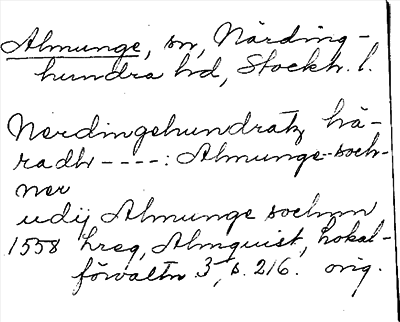 Almunge, sn, Närding-
hundra hd, Stockh. l.
Nerdingehundratz hä-
radh ----: Almunge soch-
ner
udij Almunge sochnn
1558 hreg, Almquist, Lokal-
förvaltn 3, s. 216. orig.